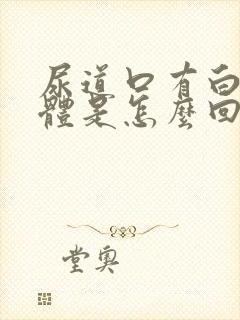 尿道口有白
體是怎麼回
堂奧